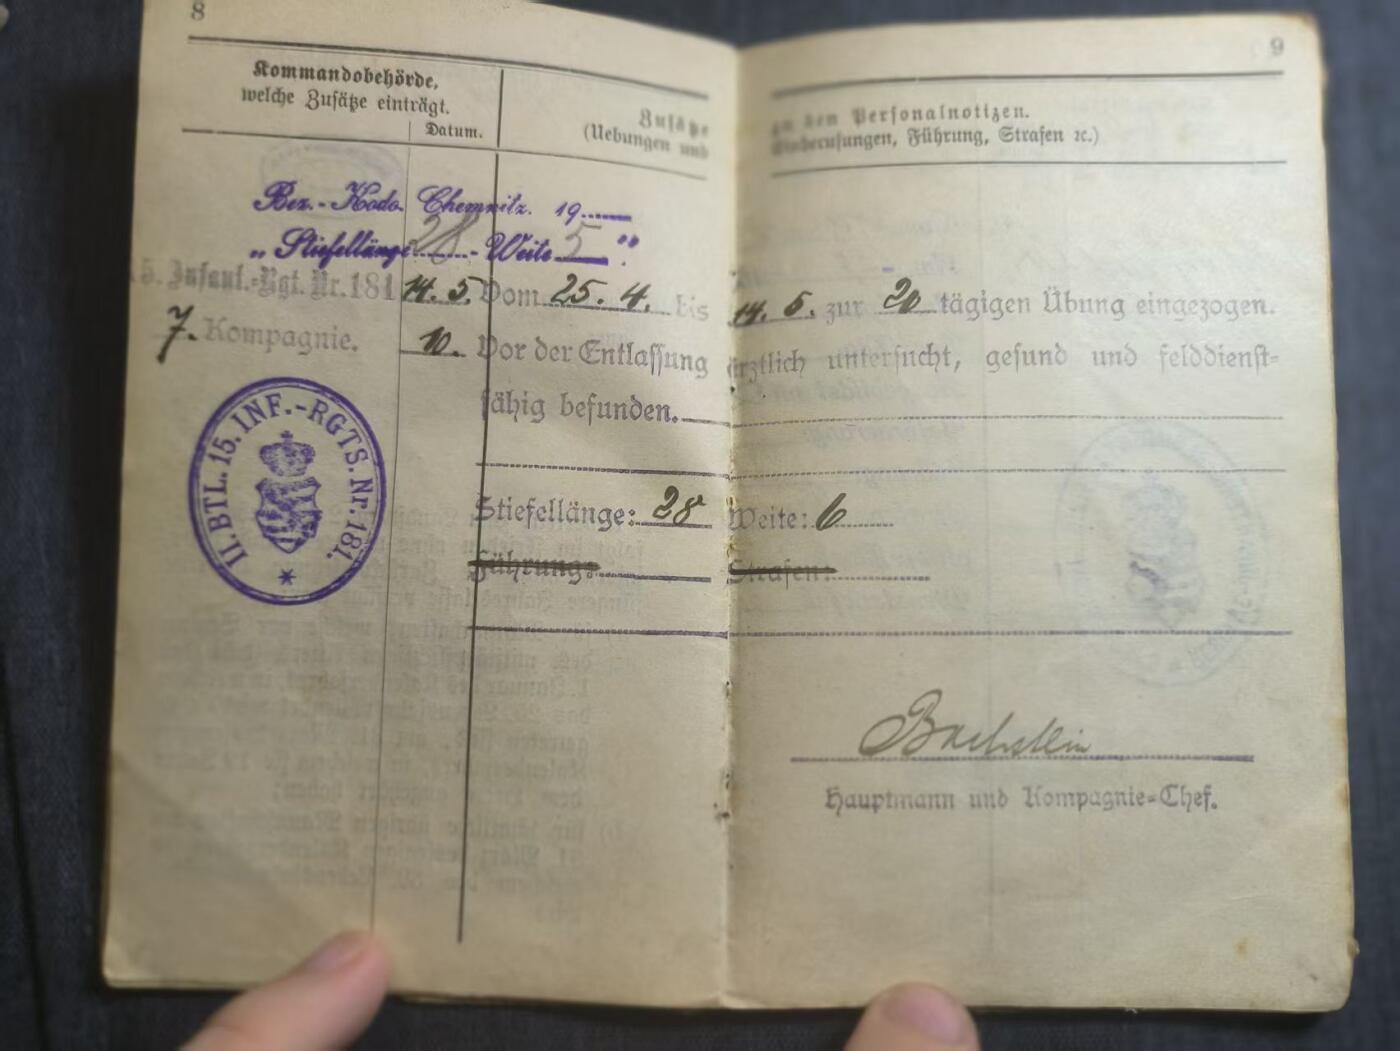 8
Kommandobehörde,
welche Zusätze einträgt.
Datum.
Zusätze
(Uebungen und
Bez.-Kodo. Chemnitz. 19
„ Stiefellänge 28 - Weite 5 "
15. Infant.-Rgt. Nr. 181
7. Kompagnie.
14. 5.
10.
II. BTL. 15. INF.-RGTS. Nr. 181.
9
zu den Personalnotizen.
Einberufungen, Führung, Strafen ꝛc.)
Vom 25. 4. bis 14. 5. zur 20 tägigen Übung eingezogen.
Vor der Entlassung ärztlich untersucht, gesund und felddienst-
fähig befunden.
Stiefellänge: 28 Weite: 6
Führung: Strafen:
Bachstein
Hauptmann und Kompagnie-Chef.